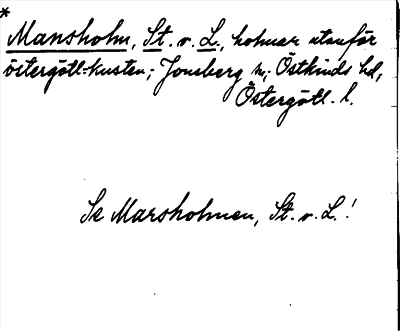 *
Mansholm, St. o. L., holmar utanför
östergötl-kusten; Jonsberg sn; Östkinds hd,
Östergötl. l.
Se Marsholmen, St. o. L.!